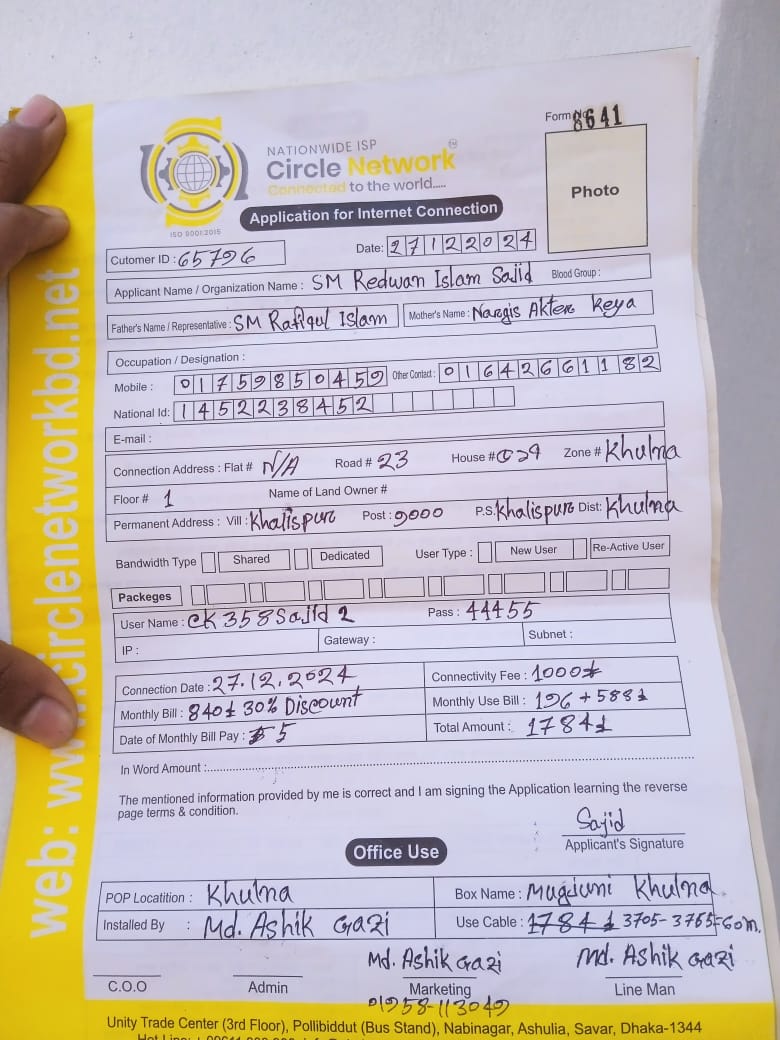 Form No 8641
NATIONWIDE ISP
Circle Network TM
Connected to the world.....
ISO 9001:2015
Photo
Application for Internet Connection
Cutomer ID : 65796
Date: 27122024
Applicant Name / Organization Name : SM Redwan Islam Sajid Blood Group :
Father's Name / Representative : SM Rafiqul Islam Mother's Name : Nargis Akter Keya
Occupation / Designation :
Mobile : 01759850459 Other Contact : 01642661182
National Id: 1452238452
E-mail :
Connection Address : Flat # N/A Road # 23 House # Zone # Khulna
Floor # 1 Name of Land Owner #
Permanent Address : Vill : Khalispur Post : 9000 P.S. Khalispur Dist: Khulna
Bandwidth Type Shared Dedicated User Type : New User Re-Active User
Packeges
User Name : CK358Sajid2 Pass : 44455
IP : Gateway : Subnet :
Connection Date : 27.12.2024 Connectivity Fee : 1000
Monthly Bill : 840 30% Discount Monthly Use Bill : 196 + 588
Date of Monthly Bill Pay : 5 Total Amount : 1784
In Word Amount :
The mentioned information provided by me is correct and I am signing the Application learning the reverse
page terms & condition.
Sajid
Applicant's Signature
Office Use
POP Locatition : Khulna Box Name : Khulna
Installed By : Md. Ashik Gazi Use Cable : 1784 3705-3765=60m.
Md. Ashik Gazi Md. Ashik Gazi
C.O.O Admin Marketing Line Man
01958-113049
Unity Trade Center (3rd Floor), Pollibiddut (Bus Stand), Nabinagar, Ashulia, Savar, Dhaka-1344
web: www.circlenetworkbd.net